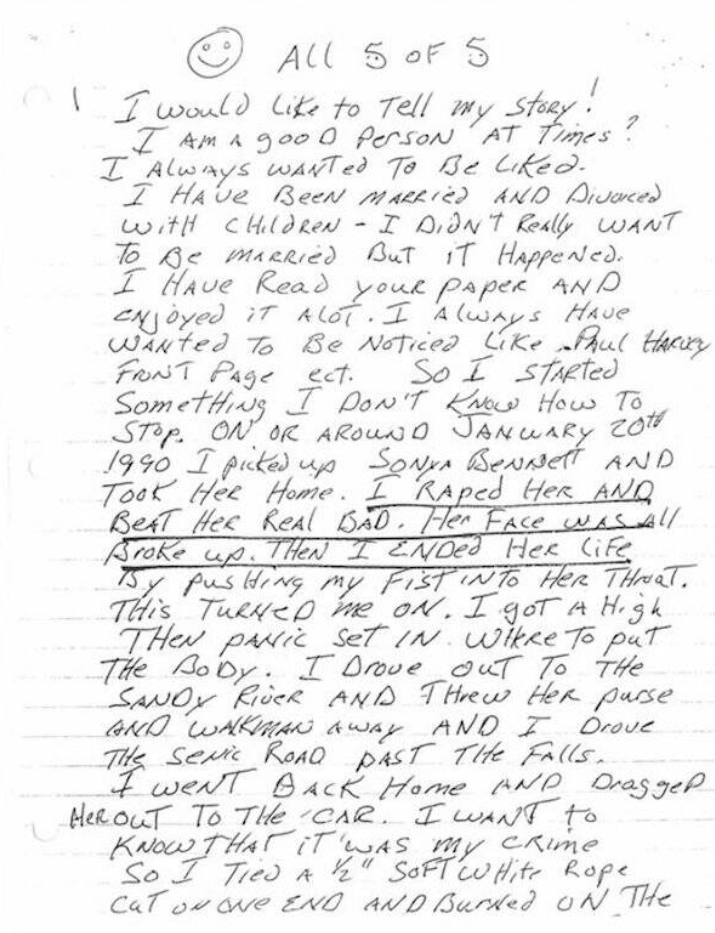 All 5 of 5
1 I would like to Tell my story!
I am a good person at times?
I always wanted to be liked.
I have been married and divorced
with children - I didn't really want
to be married but it happened.
I have read your paper and
enjoyed it alot. I always have
wanted to be noticed like Paul Harvey
Front Page ect. So I started
something I don't know how to
stop. On or around January 20th
1990 I picked up Sonya Bennett and
took her home. I raped her and
beat her real bad. Her face was all
broke up. Then I ended her life
by pushing my fist into her throat.
This turned me on. I got a high
then panic set in. Where to put
the body. I drove out to the
Sandy River and threw her purse
and walkman away and I drove
the senic road past the falls.
I went back home and dragged
her out to the car. I want to
know that it was my crime
So I tied a ½" soft white rope
cut on one end and burned on the